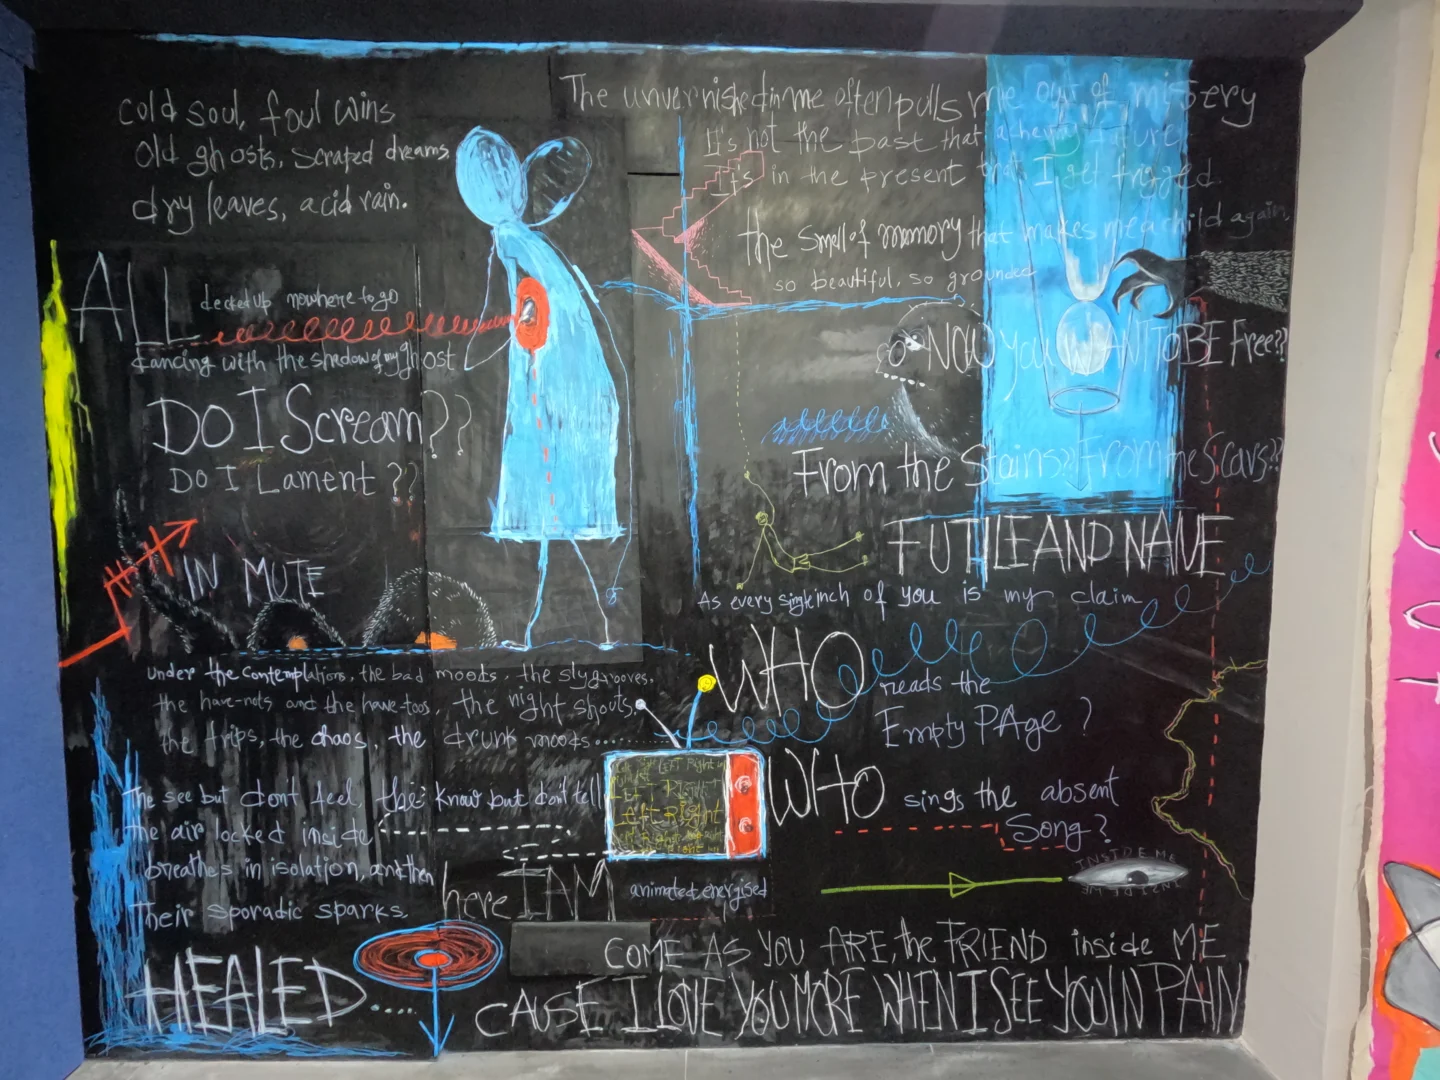 cold soul, foul wins
old ghosts, scraped dreams,
dry leaves, acid rain.
ALL decked up nowhere to go
dancing with the shadow of my ghost
Do I Scream??
Do I Lament??
IN MUTE
under the contemplations, the bad moods, the sly grooves,
the have-nots and the have toos, the night shouts,
the trips, the chaos, the drunk moods.....
The see but dont feel, the know but don't tell
the air locked inside
breathes in isolation, and then
Their sporadic sparks.
here I AM
HEALED.....
The unvernished in me often pulls me out of missery
It's not the past that a future
It's in the present that I get trigged
the smell of memory that makes me a child again,
so beautiful, so grounded
NOW you WANT TO BE Free??
From the Stains? From the Scars??
FUTILE AND NAVE
As every single inch of you is my claim
WHO reads the
Empty PAge ?
LEFT Right
Left Right
Left Right
WHO sings the absent
Song?
animated, energised
INSIDE ME
INSIDE ME
COME AS YOU ARE, the FRIEND inside ME
CAUSE I LOVE YOU MORE WHEN I SEE YOU IN PAIN